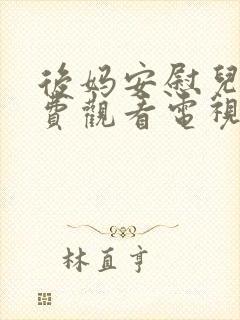 後妈安慰兒
費觀看電視
林直亨